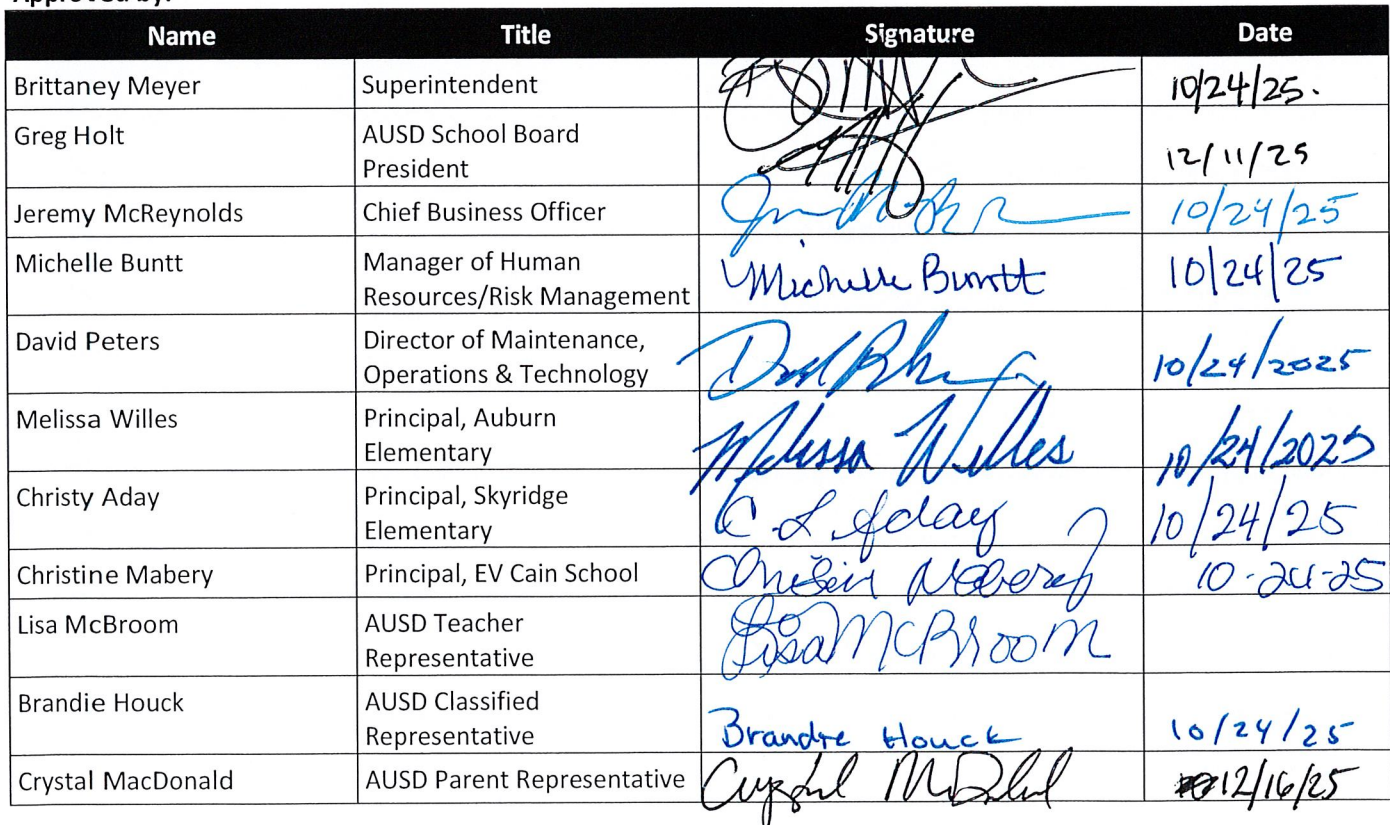 Approved by:
Name Title Signature Date
Brittaney Meyer Superintendent 10/24/25.
Greg Holt AUSD School Board
President 12/11/25
Jeremy McReynolds Chief Business Officer 10/24/25
Michelle Buntt Manager of Human
Resources/Risk Management Michelle Buntt 10/24/25
David Peters Director of Maintenance,
Operations & Technology 10/24/2025
Melissa Willes Principal, Auburn
Elementary Melissa Willes 10/24/2025
Christy Aday Principal, Skyridge
Elementary C L Aday 10/24/25
Christine Mabery Principal, EV Cain School Christin Mabery 10-24-25
Lisa McBroom AUSD Teacher
Representative Lisa McBroom
Brandie Houck AUSD Classified
Representative Brandie Houck 10/24/25
Crystal MacDonald AUSD Parent Representative 12/16/25